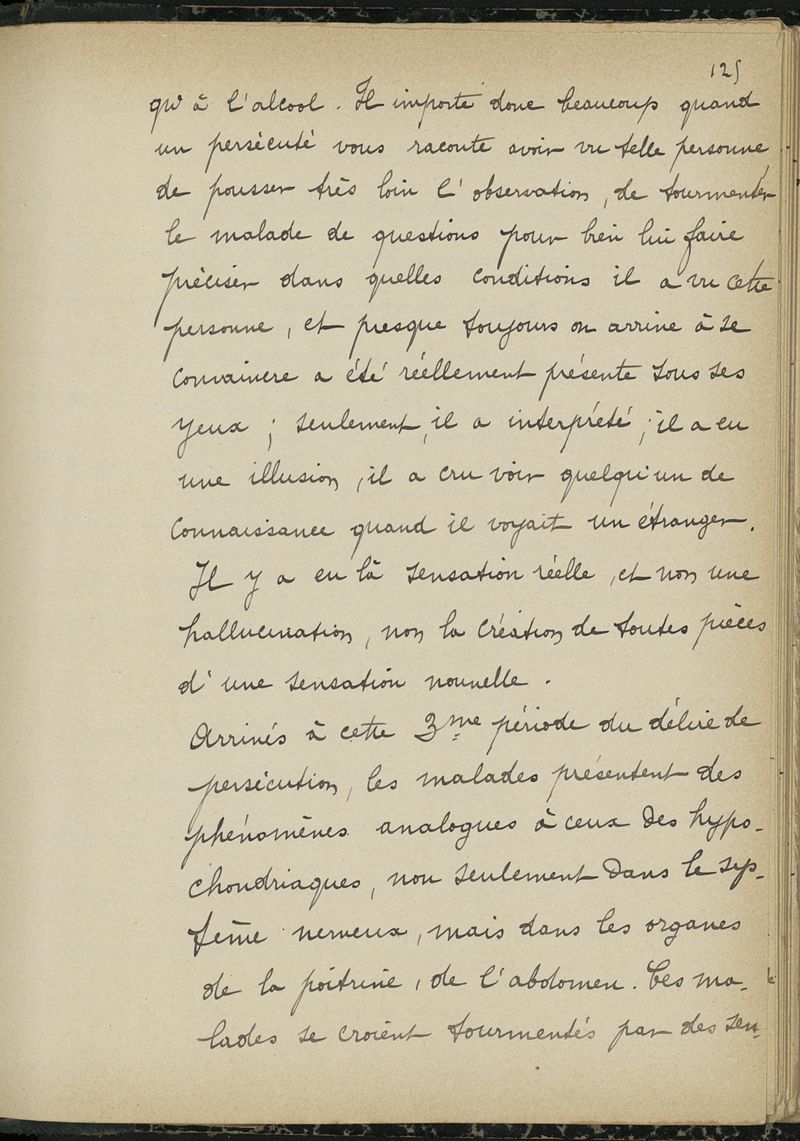 125
qu'à l'alcool. Il importe donc beaucoup quand
un persécuté vous raconte avoir vu telle personne,
de pousser très loin l'observation, de tourmenter
le malade de questions pour bien lui faire
préciser dans quelles conditions il a vu cette
personne, et presque toujours on arrive à se
convaincre a été réellement présente sous ses
yeux ; seulement, il a interprété ; il a eu
une illusion, il a cru voir quelqu'un de
connaissance quand il voyait un étranger.
Il y a eu là sensation réelle, et non une
hallucination, non la création de toutes pièces
d'une sensation nouvelle.
Arrivés à cette 3me période du délire de
persécution, les malades présentent des
phénomènes analogues à ceux des hypo-
chondriaques, non seulement dans le sys-
tème nerveux, mais dans les organes
de la poitrine, de l'abdomen. Ces ma-
lades se croient tourmentés par des sen-